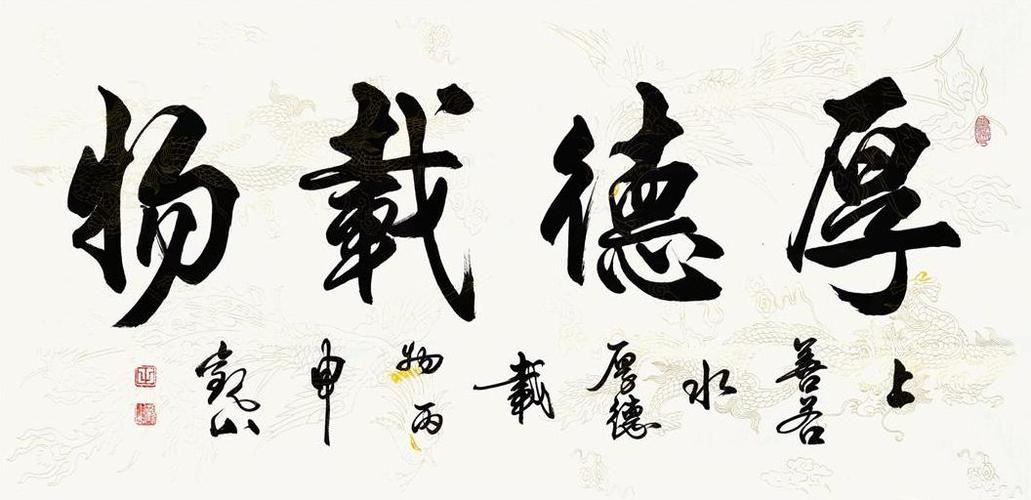 厚德載物
上善若水厚德載物丙申